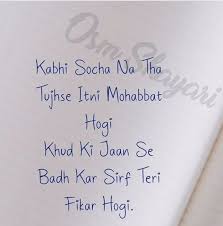 Osm Shayari
Kabhi Socha Na Tha
Tujhse Itni Mohabbat
Hogi
Khud Ki Jaan Se
Badh Kar Sirf Teri
Fikar Hogi.